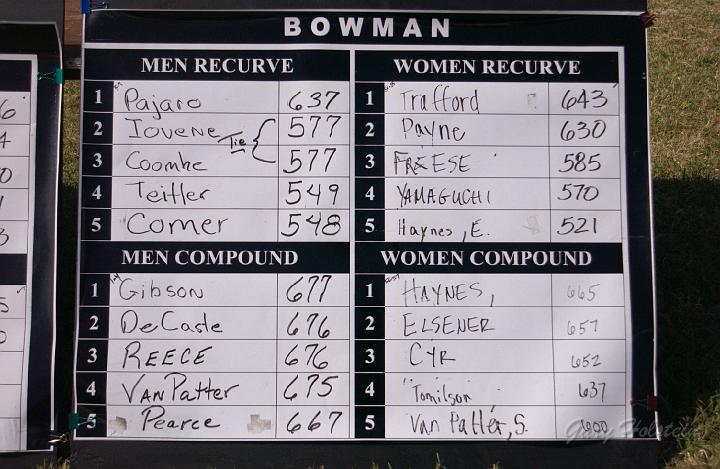 BOWMAN
MEN RECURVE
1 Pajaro 637
2 Iovene 577
Tie
3 Coombe 577
4 Teitler 549
5 Comer 548
WOMEN RECURVE
1 Trafford 643
2 Payne 630
3 FREESE 585
4 YAMAGUCHI 570
5 Haynes, E. 521
MEN COMPOUND
1 Gibson 677
2 DeCaste 676
3 REECE 676
4 VAN Patter 675
5 Pearce 667
WOMEN COMPOUND
1 HAYNES, 665
2 ELSENER 657
3 CYR 652
4 Tomilson 637
5 Van Patter, S. 600
Gary Holstein
6
4
0
1
3
5
0